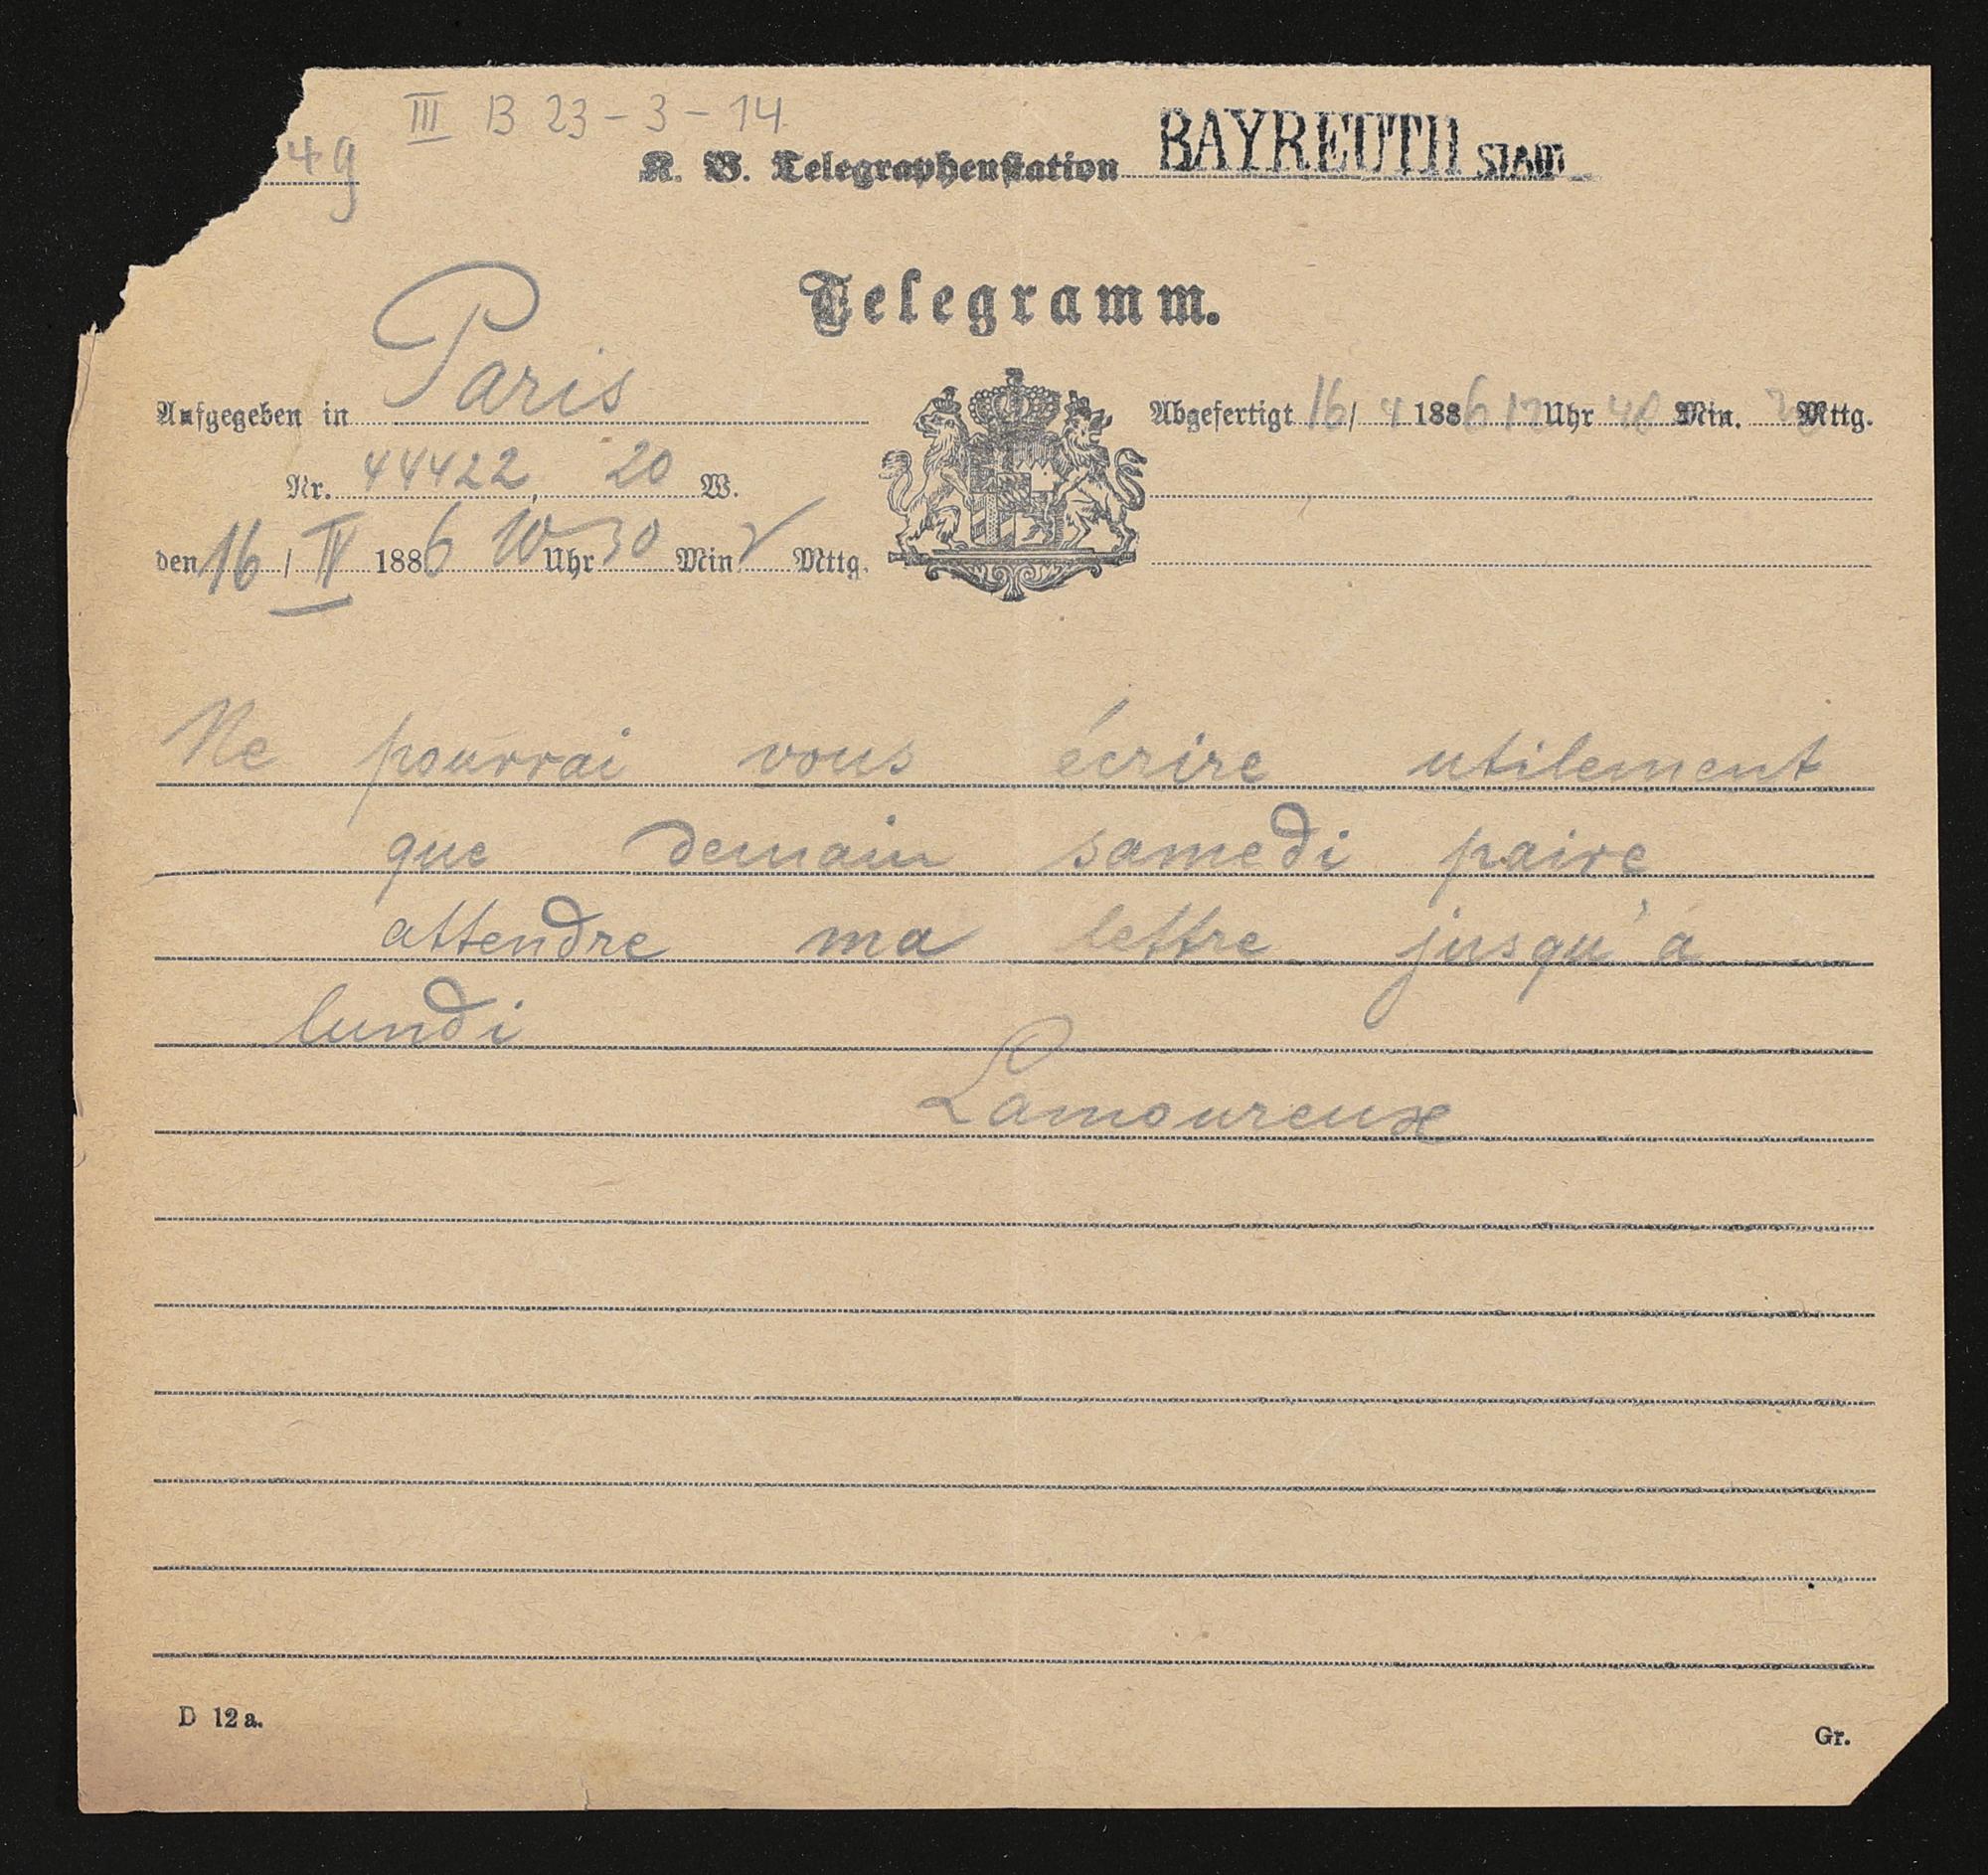 III B 23-3-14
49
K. B. Telegraphenstation BAYREUTH STADT
Telegramm.
Aufgegeben in Paris
Nr. 44422, 20 W.
den 16 / IV 1886 10 Uhr 30 Min V Mttg.
Abgefertigt 16 / 4 1886 12 Uhr 40 Min. Mttg.
Ne pourrai vous écrire utilement
que demain samedi paire
attendre ma lettre jusqu'à
lundi
Lamoureux
D 12a.
Gr.